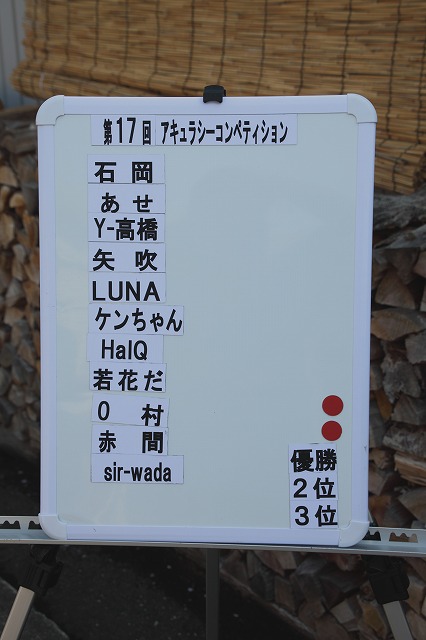 第17回 アキュラシーコンペティション
石岡
あせ
Y-高橋
矢吹
LUNA
ケンちゃん
HalQ
若花だ
O 村
赤間
sir-wada
優勝
2位
3位